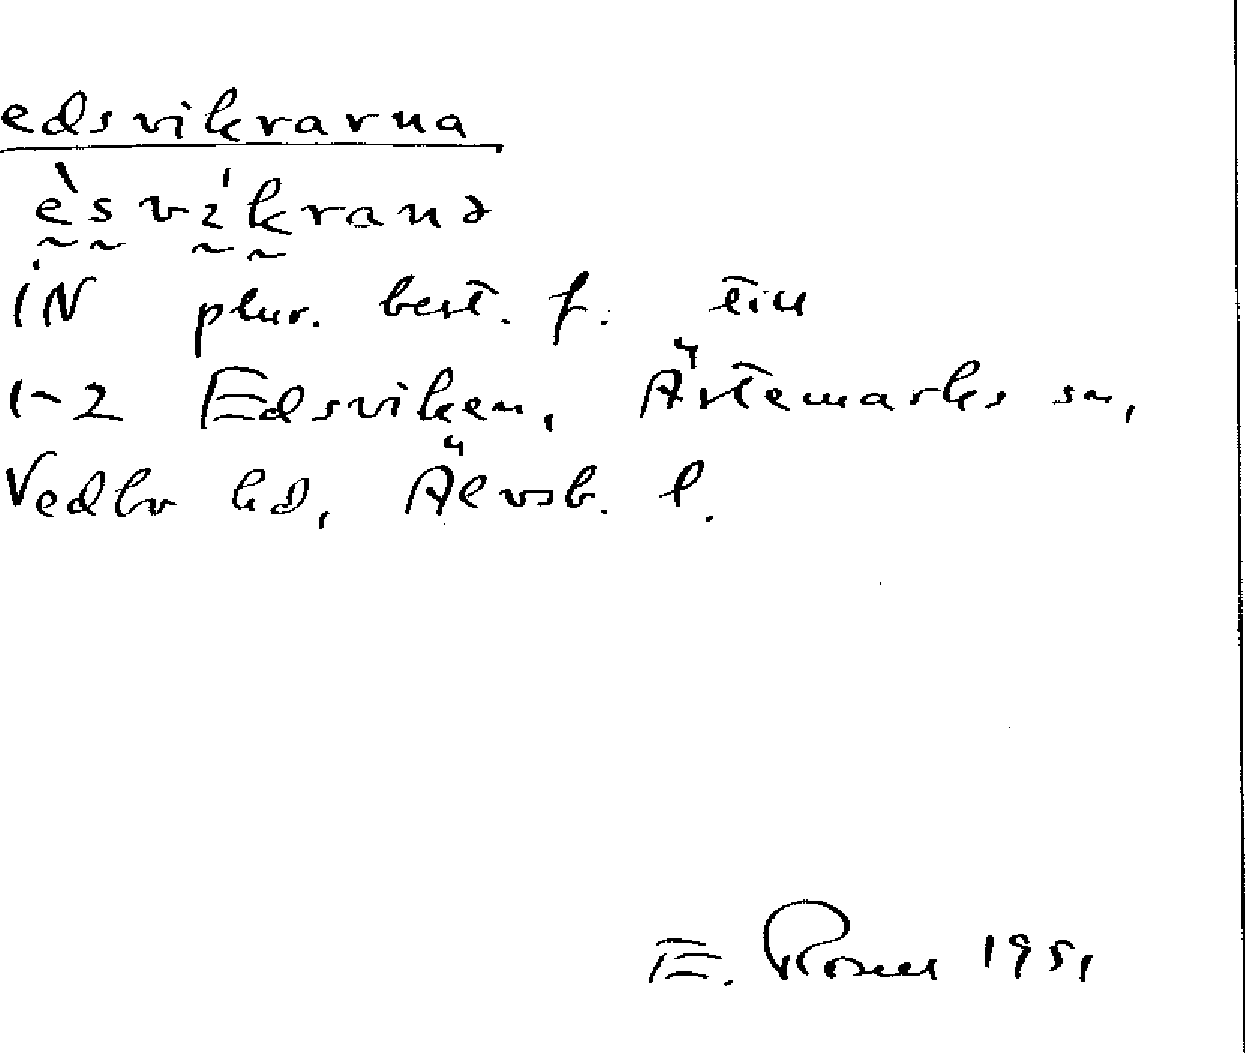 edsvikrarna
èsvíkranə
iN plur. best. f. till
1-2 Edsviken, Ärtemarks sn,
Vedbo hd, Älvsb. l.
E. Rosell 1951